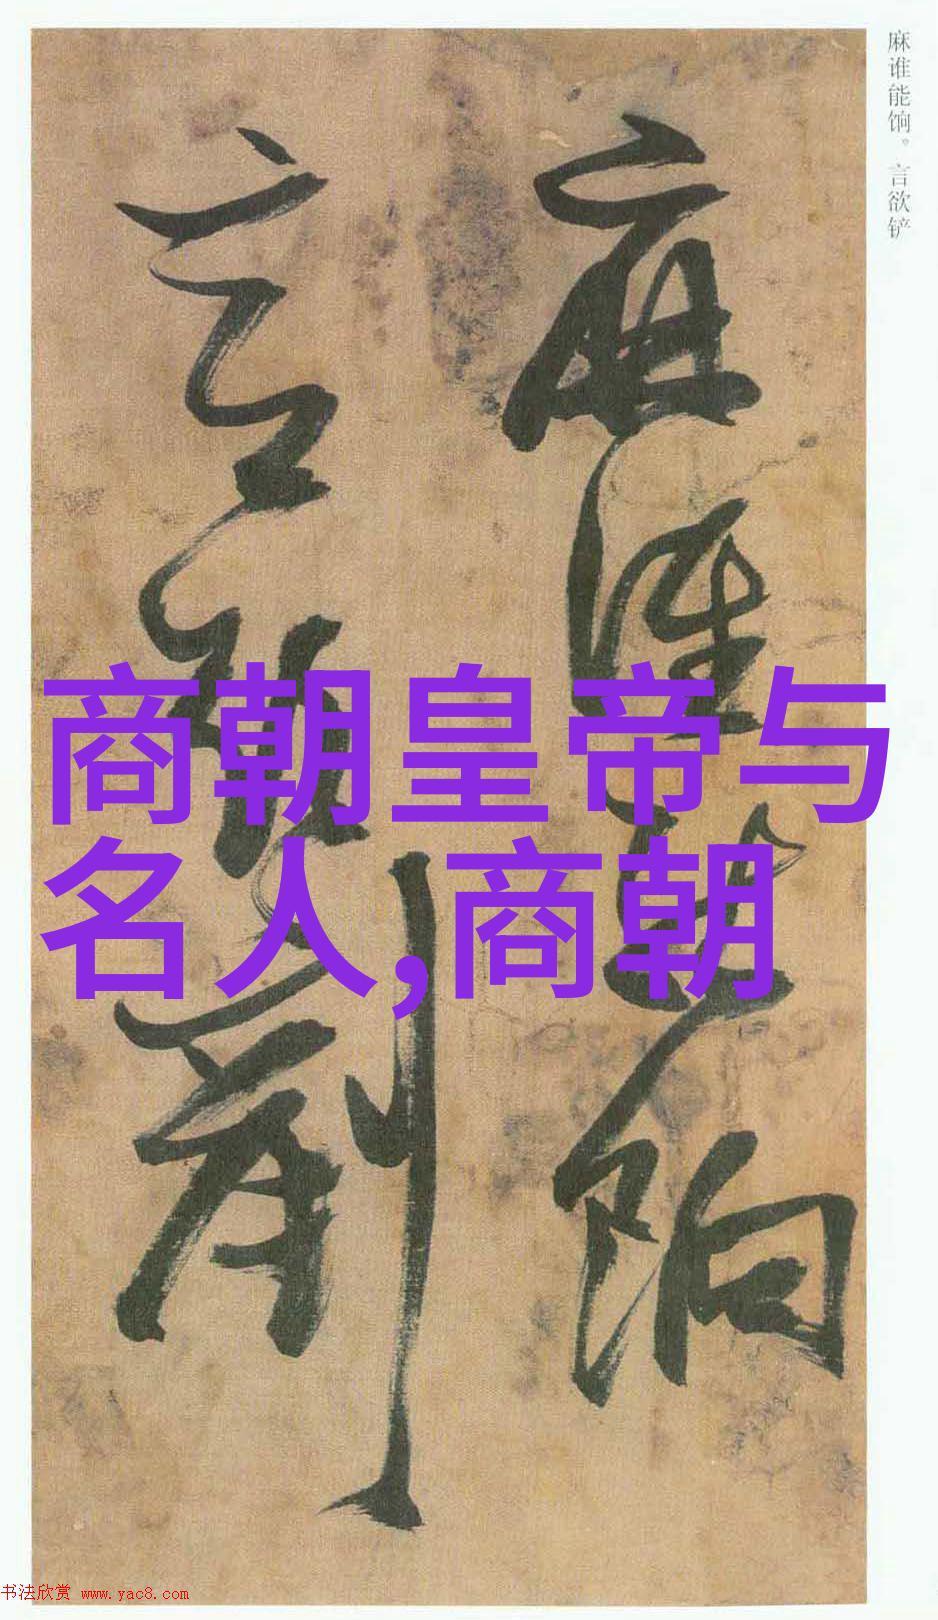 麻谁能饷。言欲铲
麻谁能饷
言欲剷
商朝皇帝与
名人,商朝
书法欣赏 www.yac8.com